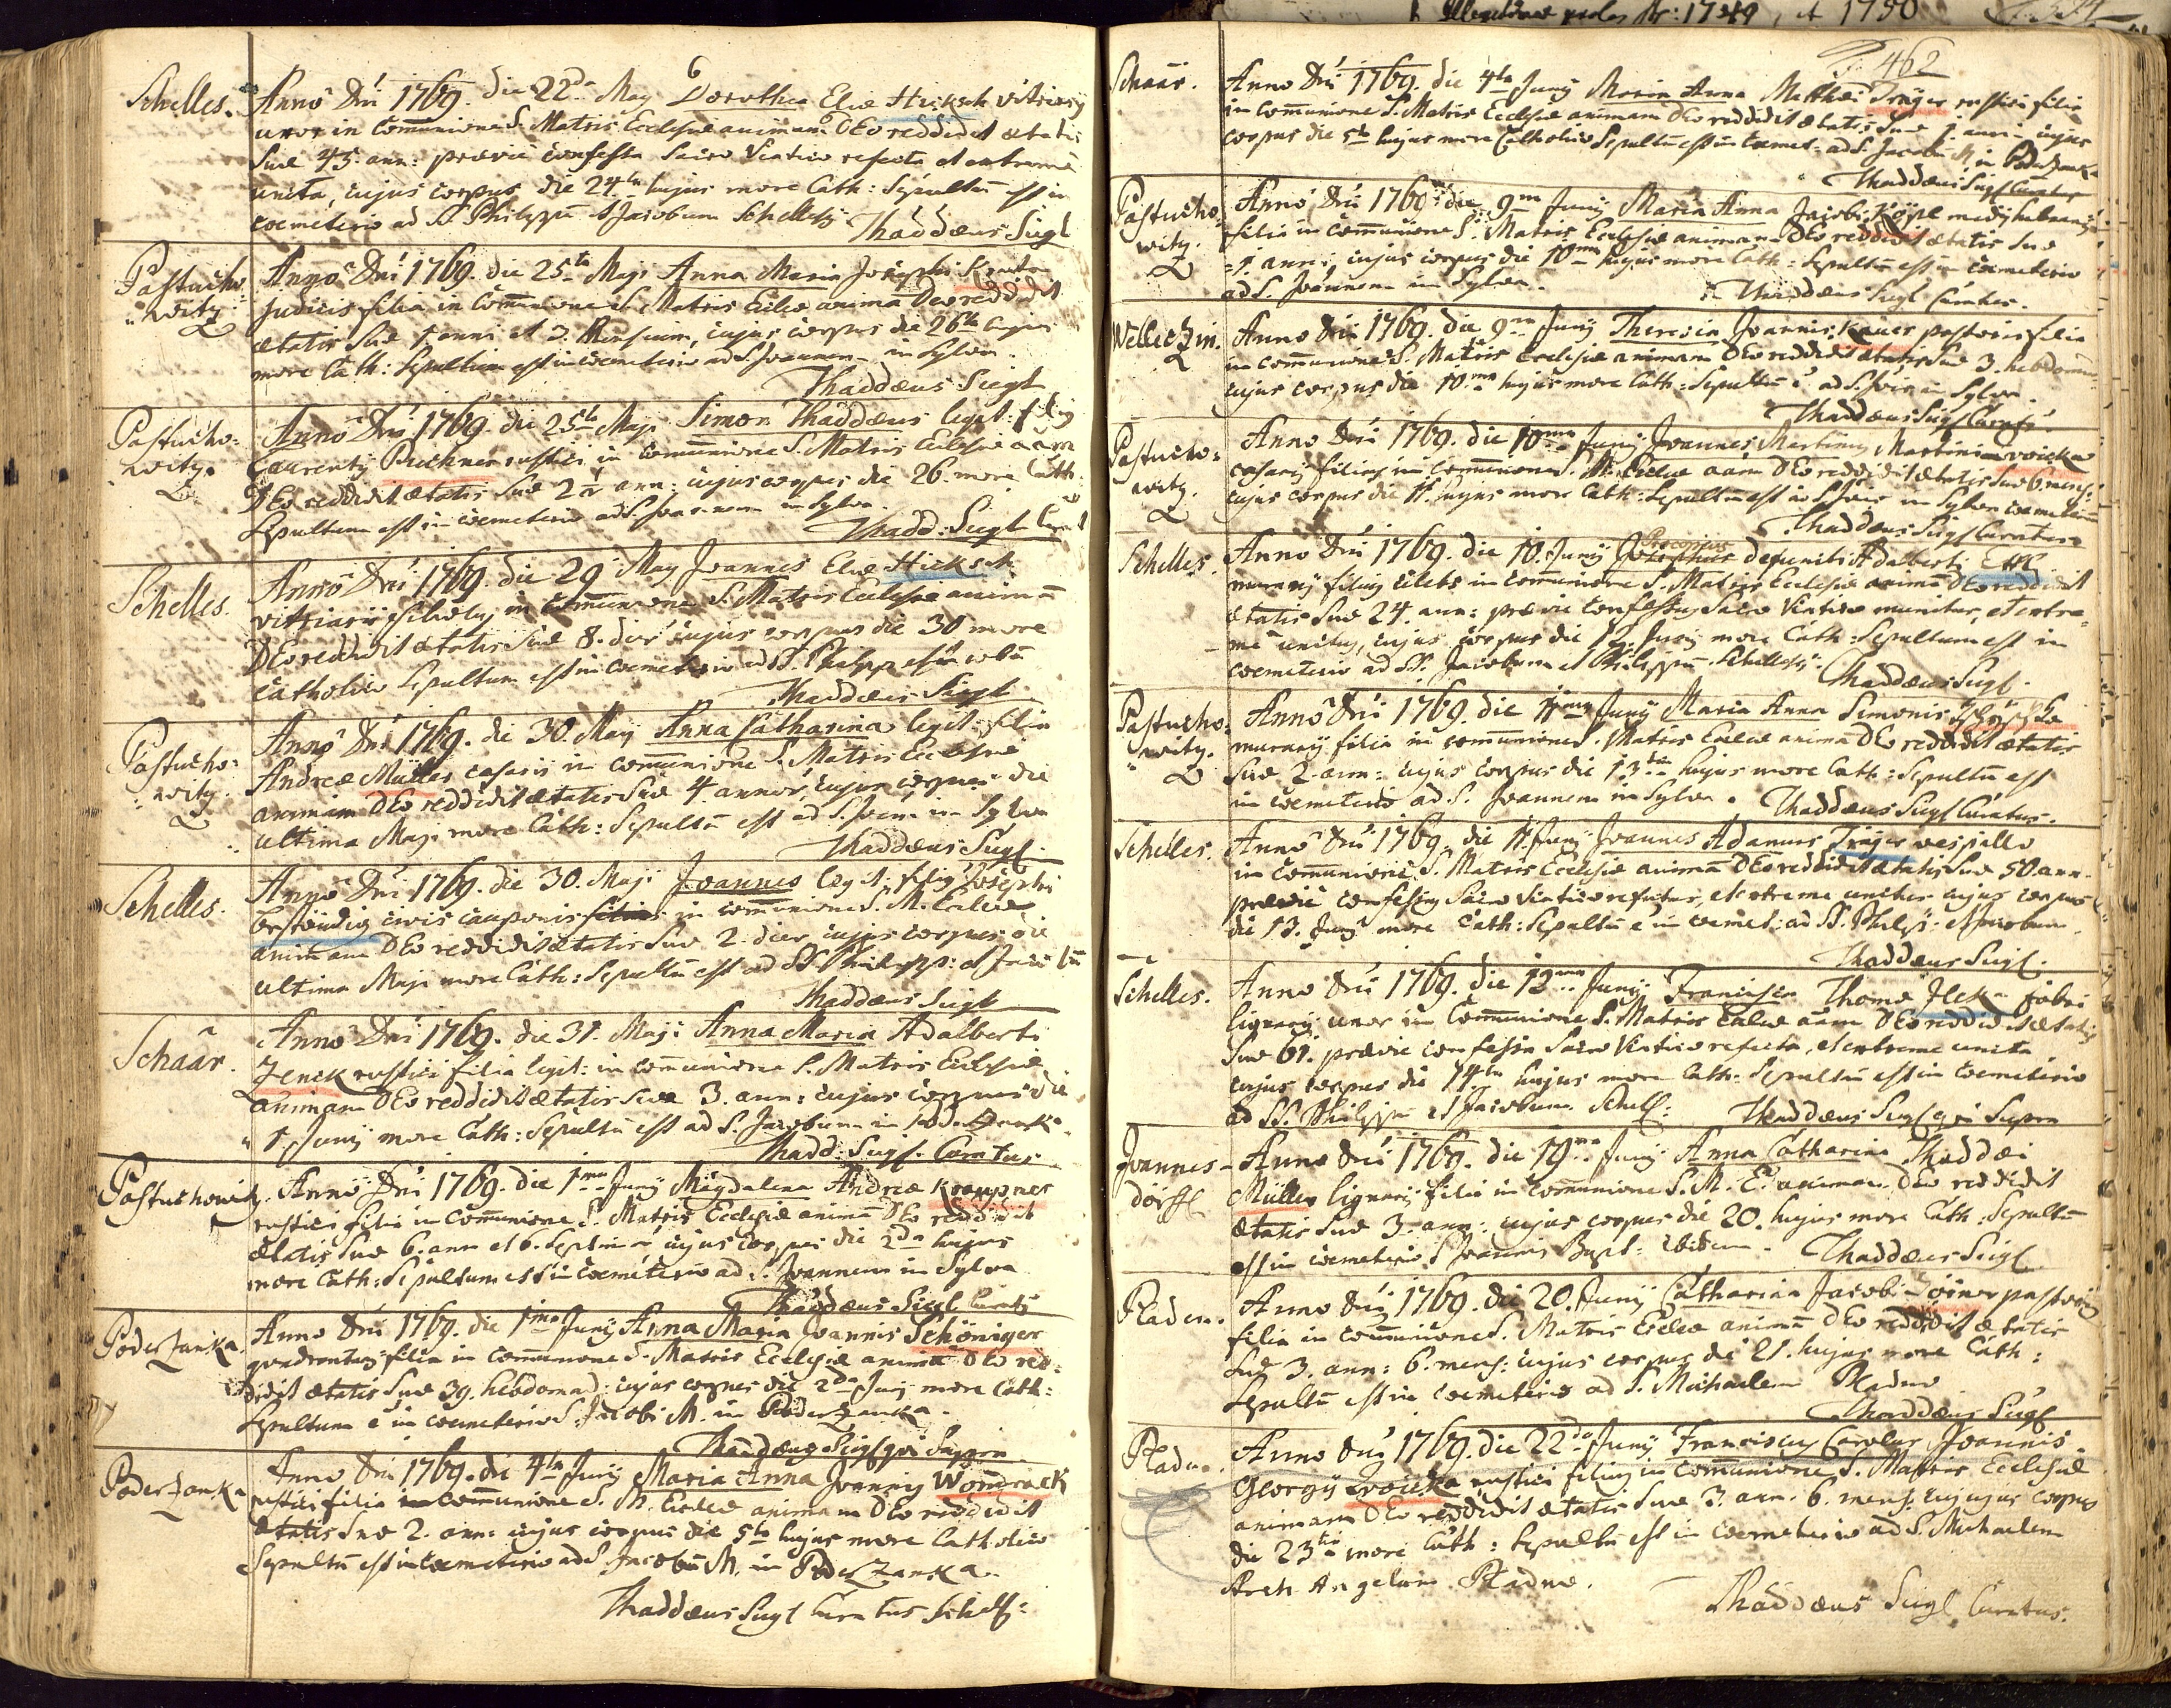 6
Schelles. Anno Dni 1769. die 22da May Dorothea Eliæ Hicksch vitriarij
uxor in Communione S. Matris Ecclesiæ animam DEo reddidit ætatis
Suæ 45. ann: prævie confessa Sacro Viatico refecta et extreme
uncta, cujus corpus die 24ta hujus more Cath: Sepultū est in
coemeterio ad SS Philippū et Jacobum Schellesÿ
Thaddæus Siegl
Pastucho=
witz
Anno Dni 1769. die 25ta Maji Anna Maria Josephi
Judicis filia in Communione S. Matris Eccleæ animā Deo reddidit
ætatis Suæ 1 anni et 3. Mensium, cujus corpus die 26ta hujus
more Cath: Sepultum est in coemeterio ad S. Joannem in Sylva.
Thaddæus Siegl
Pastucho=
witz.
Anno Dni 1769. die 25ta Maji Simon Thaddæus legit: filius
Laurentij Puchner rustici in Communione S. Matris Ecclesiæ aām
DEo reddidit ætatis Suæ 2 ann: cujus corpus die 26. more Cath:
Sepultum est in coemeterio ad S. Joannem in Sylva.
Thadd: Siegl
Schelles. Anno Dni 1769. die 29 May Joannes Eliæ Hicksch
vitriarij filius in Communione S. Matris Ecclesiæ animā
DEo reddidit ætatis Suæ 8. dier cujus corpus die 30 more
Catholico Sepultum est in coemeterio ad SS. Philipp et Jacobū
Thaddæus Siegl
Pastucho=
witz.
Anno Dni 1769. die 30. May Anna Catharina legit: filia
Andreæ Müller casarij in communione S. Matris Ecclesiæ
animam DEo reddidit ætatis Suæ 4 annor cujus corpus die
ultima Maji more Cath: Sepultū est ad S. Joan: in Sylva
Thaddæus Siegl.
Schelles. Anno Dni 1769. die 30. Maji Joannes legit: filius Josephi
Beständig civis cauponis in communione S. M. Eccleæ
animam DEo reddidit ætatis Suæ 2. dier cujus corpus die
ultima Maji more Cath: Sepultū est ad SS Philipp: et Jacobū
Thaddæus Siegl
Schaar. Anno Dni 1769. die 31. Maji Anna Maria Adalberti
Zenck rustici filia legit: in communione S. Matris Ecclesiæ
animam DEo reddidit ætatis suæ 3. ann: cujus corpus die
1 Junij more Cath: Sepultū est ad S. Jacobum in Poderzanka.
Thadd: Siegl. Curatus
Pastuchowitz. Anno Dni 1769. die 1ma Junij Magdalena Andreæ Kraupner
rustici filia in Communione S. Matris Ecclesiæ animā DEo reddidit
ætatis Suæ 6. ann et 6. Septiman cujus corpus die 2da hujus
more Cath: Sepultum est in coemeterio ad S. Joannem in Sylva
Thaddæus Siegl Curatus
Poderzanka. Anno Dni 1769. die 1ma Junij Anna Maria Joannis Schöniger
quadrantarij filia in communione S. Matris Ecclesiæ animā DEo red=
didit ætatis Suæ 39. hebdomad: cujus corpus die 2da Junij more Cath:
Sepultum e in coemeterio S. Jacobi M. in Poderzanka.
Thaddæus Siegl qui Supra
Poderzanka Anno Dni 1769. die 4ta Junij Maria Anna Joannis Womrack
rustici filia in communione S. M. Eccleæ animam DEo reddidit
ætatis Suæ 2. ann: cujus corpus die 5ta hujus more Catholico
Sepultū est in Coemeterio ad S. Jacobū M. in Poderzanka.
Thaddæus Siegl Curatus Schell:
Nr: 1749, et 1750
462
Schaar. Anno Dni 1769. die 4ta Junij Maria Anna Matthæi Träger rustici filia
in communione S. Matris Ecclesiæ animam DEo reddidit ætatis Suæ 1 anni cujus
corpus die 5ta hujus more Catholico Sepultū est in Coemet: ad S. Jacobū M. in Poderzanka
Thaddæus Siegl Curatus
Pastucho=
witz.
Anno Dni 1769. die 9na Junij Maria Anna Jacobi
filia in communione S. Matris Ecclesiæ animam DEo reddidit ætatis Suæ
1 anni cujus corpus die 10ma hujus more Cath: Sepultū est in coemeterio
ad S. Joannem in Sylva.
Thaddæus Siegl Curatus.
Welletzin. Anno Dni 1769. die 9na Junij Theresia Joannis Kauer pastoris filia
in communione S. Matris Ecclesiæ animam DEo reddidit ætatis Suæ 3. hebdom:
cujus corpus die 10.ma hujus more Cath: Sepultū e ad S. Joan in Sylva.
Thaddæus Siegl Curatus.
Pastucho=
witz.
Anno Dni 1769. die 10ma Junij Joannes Martinus Martini
casarij filius in communione S. M. Eccleæ aām DEo reddidit ætatis Suæ 6. mens:
cujus corpus die 11. hujus more Cath: Sepultū est ad S. Joan in Sylva
Thaddæus Siegl Curatus
Schelles. Anno Dni 1769. die 10. Junij Procopius defuncti Adalberti
murarij filius cælebs in communione S. Matris Ecclesiæ animā DEo reddidit
ætatis Suæ 24. ann: prævie Confessus Sacro Viatico munitus, et extre=
me unctus, cujus corpus die 12. Junij more Cath: Sepultum est in
coemeterio ad SS. Jacobum et Philippū Schellesÿ.
Thaddæus Siegl.
Pastucho=
witz.
Anno Dni 1769. die 11ma Junij Maria Anna Simonis
murarij filia in communione S. Matris Eccleæ animā DEo reddidit ætatis
Suæ 2. ann: cujus corpus die 13tia hujus more Cath: Sepultū est
in coemeterio ad S. Joannem in Sylva. Thaddæus Siegl Curatus.
Schelles. Anno Dni 1769. die 11. Junij Joannes Adamus Träger vespillo
in communione S. Matris Ecclesiæ animā DEo reddidit ætatis Suæ 50. ann.
prævie confessus Sacro Viatico refectus, et extreme unctus cujus corpus
die 13. Junij more Cath: Sepultū e in coemet: ad SS. Philip: et Jacobum.
Thaddæus Siegl.
Schelles. Anno Dni 1769. die 12ma Junij Francisca Thomæ Jlek fabri
lignarij uxor in Communione S. Matris Eccleæ aām DEo reddidit ætatis
Suæ 61. prævie confessa Sacro Viatico refecta, et extreme uncta
cujus corpus die 14ta hujus more Cath: Sepultū est in Coemeterio
ad SS. Philippū et Jacobum. Schell: Thaddæus Siegl qui Supra
Joannes=
dörffl
Anno Dni 1769. die 19na Junij Anna Catharina Thaddæi
Müller lignarij filia in communione S. M. E. animam DEo reddidit
ætatis Suæ 3. ann: cujus corpus die 20. hujus more Cath: Sepultū
est in coemeterio S Joannis Bapt: ibidem. Thaddæus Siegl
Pladen. Anno Dni 1769. die 20. Junij Catharina Jacobi pastoris
filia in communione S. Matris Eccleæ animā DEo reddidit ætatis
Suæ 3. ann: 6. mens: cujus corpus die 21. hujus more Cath:
Sepultū est in coemeterio ad S. Michaelem Pladnæ
Thaddæus Siegl
Pladn. Anno Dni 1769. die 22da Junij Franciscus Carolus Joannis
Georgij rustici filius in communione S. Matris Ecclesiæ
animam DEo reddidit ætatis Suæ 3. ann. 6. mens: cujus corpus
die 23tia more Cath: Sepultū est in coemeterio ad S. Michaelem
Arch Angelum Pladnæ.
Thaddæus Siegl Curatus.